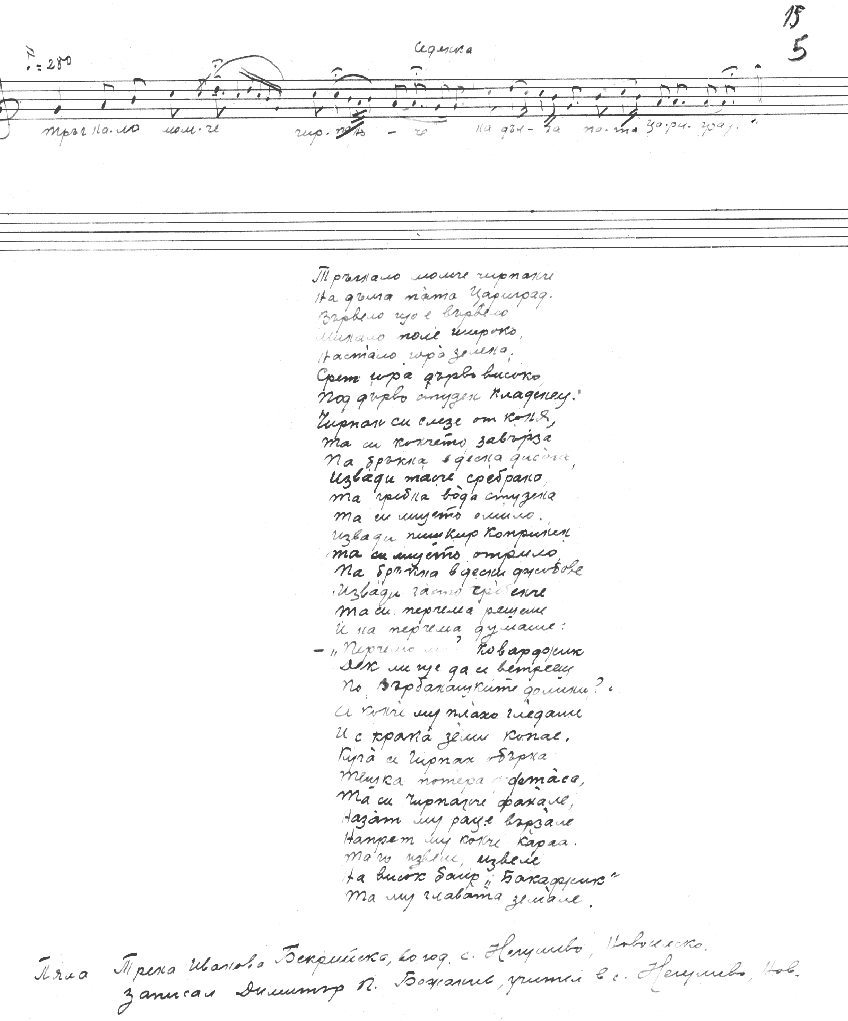 15
5
Седянка
= 280
тръг на-ло мом-че чир-пан - че на дъл-га па-та Ца-ри-град.
Тръгнало момче чирпанче
На дълга пата Цариград.
Вървело що е вървело
Минало поле широко,
Настало гора зелена,
Срет гора дърво високо,
Под дърво студен кладенец.
Чирпан си слезе от коня,
Та си кончето завърза
Па бръкна в десна
Извади тасче сребрано,
Та гребна вода студена
Та си лицето омило.
Извади пишкир копринен
Та си лицето отрило,
Па бръкна в десни джобове
Извади гребенче
Та си перчема решеше
И на перчема думаше:
– „Перчеме ле кавараджик
Дек ли ще да се ветрееш
По долини?
И конче му плахо гледаше
И с крака земи копае.
Куга се Чирпан обърна
Тешка потера фтаса,
Та си Чирпанче фанале,
Назат му раце вързале
Напрет му конче караа.
Та го извели, извеле
На висок баир „Бакаджик“
Та му главата земале.
Пяла Трена Иванова Бекрийска, 60 год. с. Негушево, Новоселско.
Записал Димитър П. Божанов, учител в с. Негушево, Нов.